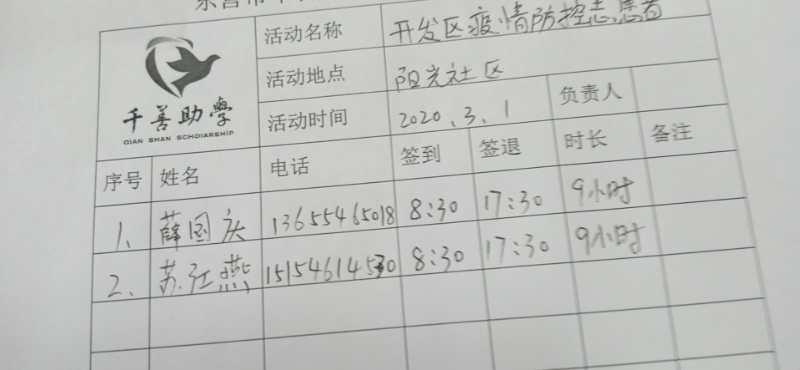 活动名称 开发区疫情防控志愿者
千善助學
QIAN SHAN SCHOIARSHIP
活动地点 阳光社区
活动时间 2020.3.1 负责人
序号 姓名 电话 签到 签退 时长 备注
1、 薛国庆 13655465018 8:30 17:30 9小时
2、 苏江燕 15154614530 8:30 17:30 9小时